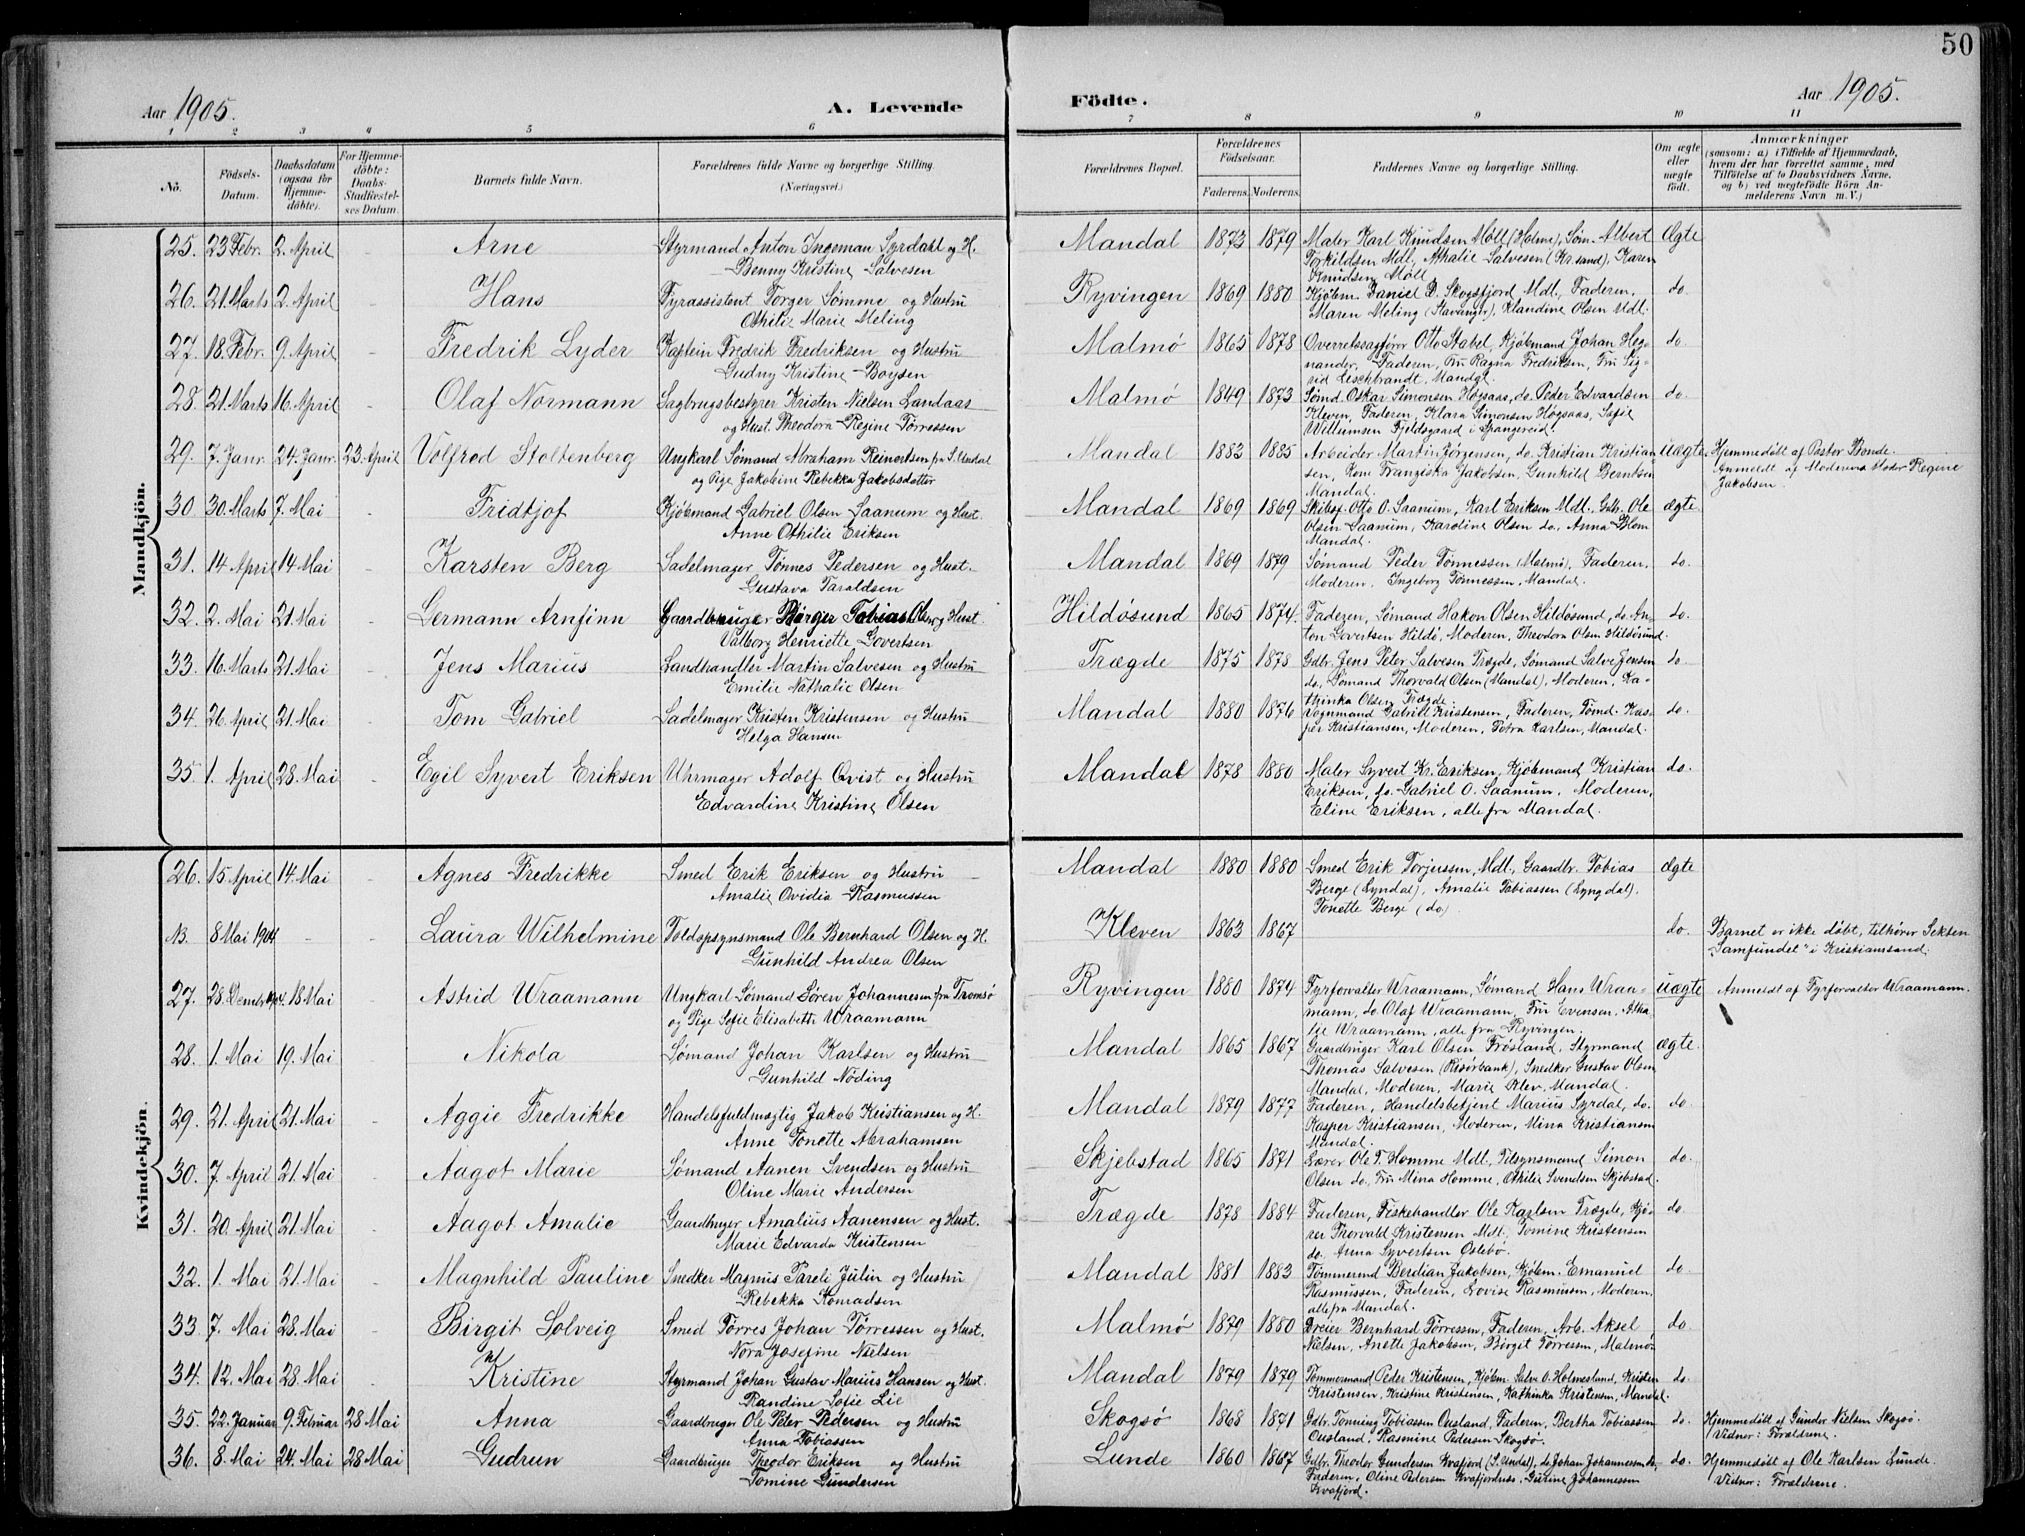 50
Aar 1905.
A. Levende
Födte.
Aar 1905.
1 2 3 4 5 6 7 8 9 10 11
No.
Födsels-Datum.
Daabsdatum (ogsaa for Hjemmedöbte).
For Hjemmedöbte: Daabs-Stadfestelses Datum.
Barnets fulde Navn.
Forældrenes fulde Navne og borgerlige Stilling. (Næringsvei.)
Forældrenes Bopæl.
Forældrenes Födselsaar.
Faderens. Moderens.
Faddernes Navne og borgerlige Stilling.
Om ægte eller uægte födt.
Anmærkninger
(saasom: a) i Tilfælde af Hjemmedaab, hvem der har forrettet samme, med Tilföielse af to Daabsvidners Navne, og b) ved uægtefödte Börn Anmelderens Navn m. V.)
Mandkjön.
25. 23 Febr. 2. April - Arne Styrmand Anton Ingeman Syrdahl og H. Mandal 1873 1879 Maler Karl Knudsen Möll (Holme), Søm. Albert Ægte
Benny Kristine Salvesen Torkildsen Mdl., Athalie Salvesen (Kr.sand), Karen
Knudsen Möll
26. 21. Marts 2. April - Hans Fyrassistent Torger Sømme og Hustru Ryvingen 1869 1880 Kjøbm. Daniel D. Skogsfjord Mdl., Faderen, do.
Othilie Marie Meling Maren Meling (Stavanger), Klandine Olsen Mdl.
27. 18. Febr. 9. April - Fredrik Lyder Kaptein Fredrik Fredriksen og Hustru Malmø 1865 1878 Overretssagfører Otto Stabel, Kjøbmand Johan Heg- do.
Gudny Kristine Boysen nander, Faderen, Fru Ragna Fredriksen, Fru Sig-
rid Leschbrandt, Mandal.
28. 21. Marts 16. April - Olaf Normann Sagbrugsbestyrer Kristen Nielsen Landaas Malmø 1849 1873 Sømd. Oskar Simonsen Høgsaas, do. Peder Edvardsen do.
og Hust. Theodora Regine Tørressen Kleven, Faderen, Klara Simonsen Høgsaas, Sofie
Willumsen Fjeldsgaard i Spangereid
29. 7. Janr. 24. Janr. 23. April Volfred Stoltenberg Ungkarl Sømand Abraham Reinertsen fra S. Undal Mandal 1883 1885 Arbeider Martin Jørgensen, do. Kristian Kristian- Uægte Hjemmedøbt af Pastor Bonde.
og Pige Jakobine Rebekka Jakobsdatter sen, Kone Franziska Jakobsen, Gunhild Berntsen Anmeldt af Moderens Moder Regine
Mandal. Jakobsen.
30 30. Marts 7. Mai - Fridtjof Kjøbmand Gabriel Olsen Saanum og Hust. Mandal 1869 1869 Skibsf. Otto O. Saanum, Karl Eriksen Mdl. Gdb. Ole ægte.
Anne Othilie Eriksen Olsen Saanum, Karoline Olsen do., Anna Blom
Mandal.
31. 14 April 14 Mai - Karsten Berg Sadelmager Tønnes Pedersen og Hust. Mandal 1869 1879 Sømand Peder Tønnessen (Malmø), Faderen, do.
Gustava Taraldsen Moderen, Ingeborg Tønnessen, Mandal.
32. 2. Mai 21. Mai - Lermann Arnfinn Gaardbruger Børger Tobias Olsen og Hust. Hildøsund 1865 1874. Faderen, Sømand Hakon Olsen Hildøsund, do. An- do.
Valborg Henriette Govertsen ton Govertsen Hildø, Moderen, Theodora Olsen Hildøsund.
33. 16. Marts 21. Mai - Jens Marius Landhandler Martin Salvesen og Hustru Trægde 1875 1878 Gdbr. Jens Peter Salvesen Trægde, Sømand Salve Jensen do.
Emilie Nathalie Olsen do., Sømand Thorvald Olsen (Mandal), Moderen, Ka-
thinka Olsen Trægde.
34. 26. April 21. Mai - Tom Gabriel Sadelmager Kristen Kristensen og Hustru Mandal 1880 1876 Vognmand Gabriel Kristensen, Faderen, Tømd. Kas- do.
Helga Hansen per Kristiansen, Moderen, Petra Karlsen, Mandal.
35. 1. April 28. Mai - Egil Syvert Eriksen Uhrmager Adolf Qvist og Hustru Mandal 1878 1880 Maler Syvert Kr. Eriksen, Kjøbmand Kristian do.
Edvardine Kristine Olsen Eriksen, do. Gabriel O. Saanum, Moderen,
Eline Eriksen, alle fra Mandal.
Kvindekjön.
26. 15 April 14. Mai Agnes Fredrikke Smed Erik Eriksen og Hustru Mandal 1880 1880 Smed Erik Torjussen, Mdl., Gaardbr. Tobias ægte
Amalie Ovidia Rasmussen Berge (Lyndal), Amalie Tobiassen (Lyngdal).
Tonette Berge (do).
N. 8 Mai 1904 - - Laura Wilhelmine Toldopsynsmand Ole Bernhard Olsen og H. Kleven 1863 1867 do. Barnet er ikke døbt, tilhører Sekten
Gunhild Andrea Olsen "Samfundet" i Kristianssand.
27. 28. Decmbr. 1904. 18 Mai - Astrid Wraamann Ungkarl Sømand Søren Johannesen fra Tromsø Ryvingen 1880 1874 Fyrforvalter Wraamann, Sømand Hans Wraa- uægte Anmeldt af Fyrforvalter Wraamann.
og Pige Sofie Elisabeth Wraamann mann, do. Olaf Wraamann, Fru Evensen, Atha-
lie Wraamann, alle fra Ryvingen.
28. 1. Mai 19. Mai - Nikola Sømand Johan Karlsen og Hustru Mandal 1865 1867 Gaardbruger Karl Olsen Frøsland, Styrmand ægte.
Gunhild Nøding Thomas Salvesen (Risørbank), Snedker Gustav Olsen
Mandal, Moderen, Marie Klev, Mandal.
29. 21. April 21. Mai - Aggie Fredrikke Handelsfuldmægtig Jakob Kristiansen og H. Mandal 1879 1877 Faderen, Handelsbetjent Marius Syrdal, do. do.
Anne Tonette Abrahamsen Kasper Kristiansen, Moderen, Mina Kristiansen
Mandal.
30. 7. April 21. Mai - Aagot Marie Sømand Aanen Svendsen og Hustru Skjebstad 1865 1871 Lærer Ole T. Homme Mdl., Tilsynsmand Simon do.
Oline Marie Andersen Olsen do, Fru Mina Homme, Othilie Svendsen Skjebstad.
31. 20. April 21. Mai - Aagot Amalie Gaardbruger Amalius Aanensen og Hust. Trægde 1878 1884 Faderen, Fiskehandler Ole Karlsen Trægde, Kjø- do.
Marie Edvarda Kristensen rer Thorvald Kristensen Mdl., Tomine Kristensen
do. Anna Syvertsen Oslebø.
32. 1. Mai 21. Mai - Magnhild Pauline Snedker Magnus Pareli Julin og Hustru Mandal 1881 1883 Tømmermd Berdian Jakobsen, Kjøbm. Emanuel do.
Rebekka Konradsen Rasmussen, Faderen, Lovise Rasmussen, Moderen,
alle fra Mandal.
33. 7. Mai 28. Mai - Birgit Solveig Smed Tørres Johan Tørressen og Hust. Malmø 1879 1880 Dreier Bernhard Tørressen, Faderen, Arb. Aksel do.
Nora Josefine Nielsen Nielsen, Anette Jakobsen, Birgit Tørressen, Malmø.
34. 12. Mai 28. Mai Kristine Styrmand Johan Gustav Marius Hansen og Hust. Mandal 1879 1879 Tømmermand Peder Kristensen, Kjøbm. Salve O. Holmesland, Kristen do.
Randine Sofie Lie Kristensen, Kristine Kristensen, Kathinka Kristensen, Mandal.
35. 22. Januar 9. Februar 28 Mai Anna Gaardbruger Ole Peter Pedersen og Hustru Skogsø 1868 1871 Gdbr. Tønning Tobiassen Ousland, Faderen, Bertha Tobiassen do. Hjemmedøbt af Gunder Nielsen Skogsø.
Anna Tobiassen Ousland, Rasmine Pedersen Skogsø. Vidner: Forældrene.
36. 8. Mai 24. Mai 28 Mai Gudrun Gaardbruger Theodor Eriksen og Hustru Lunde 1860 1867 Gdbr. Theodor Gundersen Kvafjord (S. Undal), do Johan Johannessen do, do. Hjemmedøbt af Ole Karlsen Lunde.
Tomine Gundersen Faderen, Oline Pedersen Kvafjordnes, Gurine Johannessen Vidner: Forældrene.
Kvafjord.